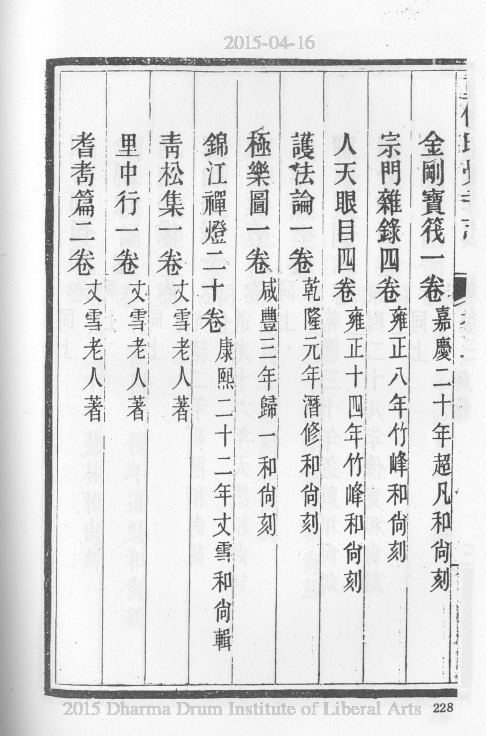 2015-04-16
金剛寶筏一卷嘉慶二十年超凡和尙刻
宗門雜錄四卷雍正八年竹峰和尙刻
人天眼目四卷雍正十四年竹峰和尙刻
護法論一卷乾隆元年潛修和尙刻
極樂圖一卷咸豐三年歸 和尙刻
錦江禪燈二十卷康熙二十二年丈雪和尙輯
靑松集一卷丈雪老人著
里中行一卷丈雪老人著
耆耇篇二卷丈雪老人著
2015 Dharma Drum Institute of Liberal Arts
228